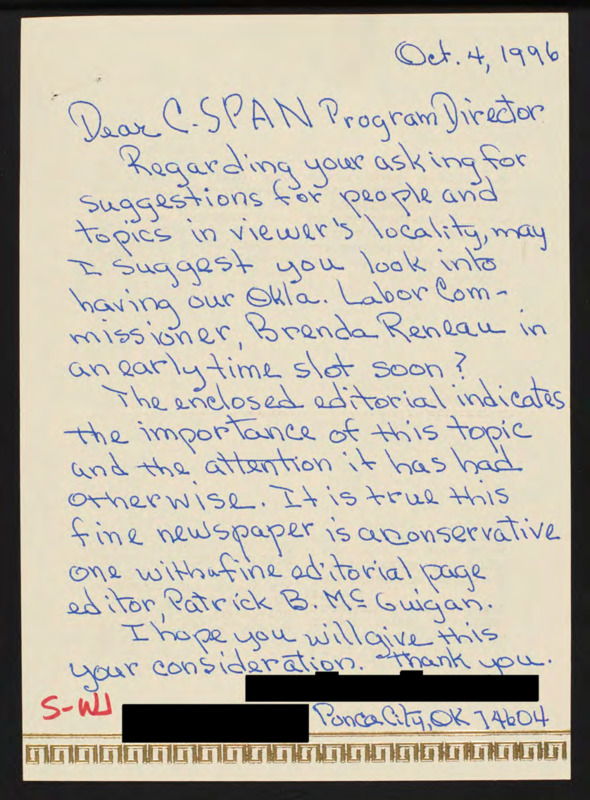 Oct. 4, 1996
Dear C-SPAN Program Director
Regarding your asking for
suggestions for people and
topics in viewer's locality, may
I suggest you look into
having our Okla. Labor Com-
missioner, Brenda Reneau in
an early time slot soon?
The enclosed editorial indicates
the importance of this topic
and the attention it has had
otherwise. It is true this
fine newspaper is a conservative
one with a fine editorial page
editor, Patrick B. McGuigan.
I hope you will give this
your consideration. Thank you.
S-WJ
Ponca City, OK 74604